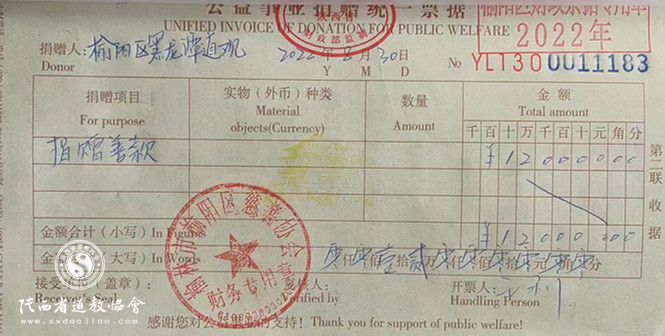 公益事业捐赠统一票据
UNIFIED INVOICE OF DONATION FOR PUBLIC WELFARE
2022年
捐赠人: 榆阳区黑龙潭道观 2022年8月30日
Donor Y M D
No YLT30 0011183
捐赠项目 实物（外币）种类 数量 金额
For purpose Material objects(Currency) Amount Total amount
千百十万千百十元角分
捐赠善款 ¥12000000
第二联 收据
金额合计（小写）In Figures ¥12000000
金额 大写）In Words 零仟零佰壹拾贰万零仟零佰零拾零元零角零分
接受 （盖章） 复核人: 开票人:
Receiver's Seal Verified by Handling Person
感谢您对公益 的支持！Thank you for support of public welfare!
榆林市榆阳区慈善协会
财务专用章
陕西省道教协会
www.sxdaojiao.com